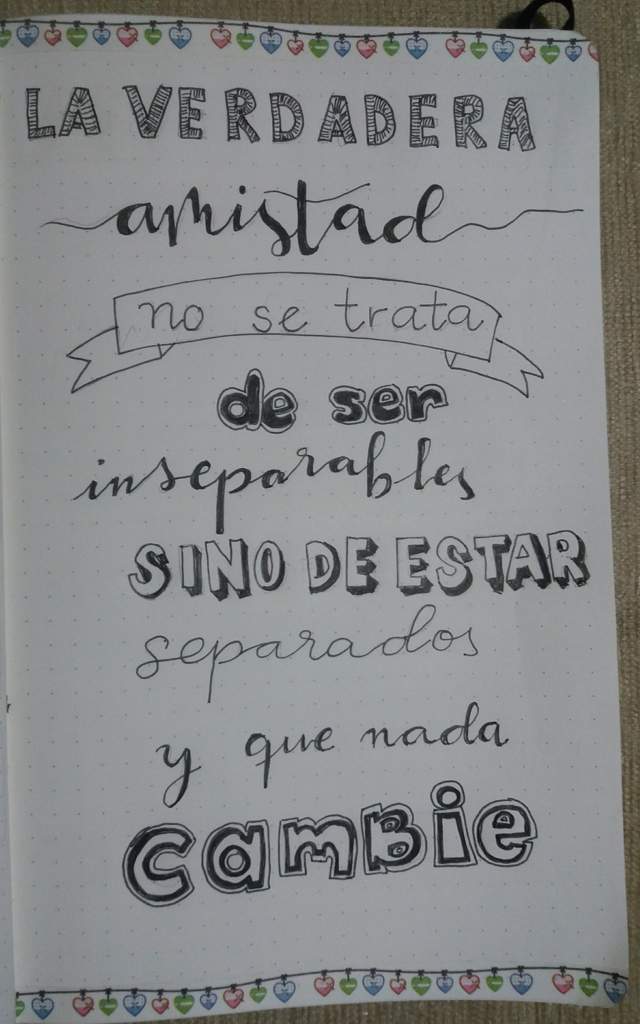 LA VERDADERA
amistad
no se trata
de ser
inseparables
SINO DE ESTAR
separados
y que nada
CamBie